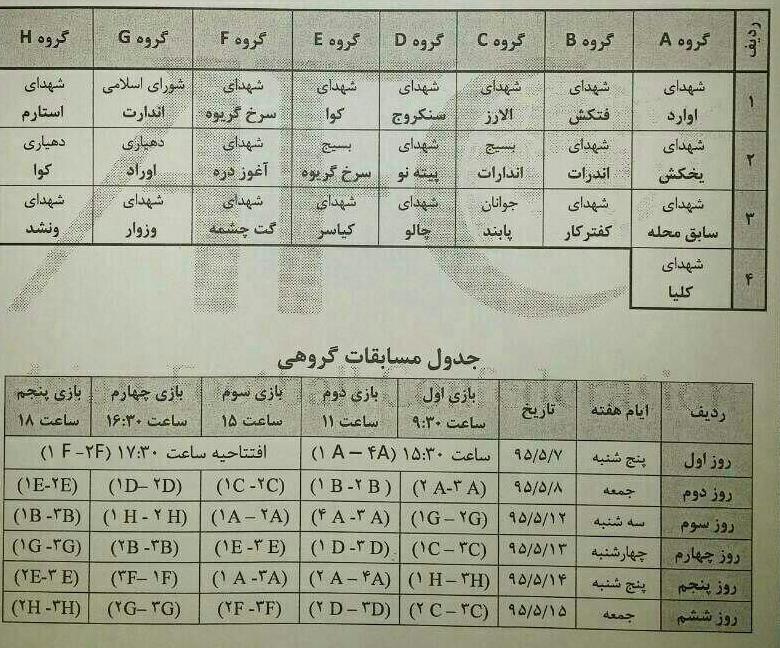 ردیف گروه A گروه B گروه C گروه D گروه E گروه F گروه G گروه H
۱ شهدای اوارد شهدای فتکش شهدای الارز شهدای سنکروج شهدای کوا شهدای سرخ گریوه شورای اسلامی اندارت شهدای استارم
۲ شهدای یخکش شهدای اندرات بسیج اندارات شهدای پیته نو بسیج سرخ گریوه شهدای آغوز دره دهیاری اوراد دهیاری کوا
۳ شهدای سابق محله شهدای کفترکار جوانان پابند شهدای چالو شهدای کیاسر شهدای گت چشمه شهدای وزوار شهدای ونشد
۴ شهدای کلیا
جدول مسابقات گروهی
ردیف ایام هفته تاریخ بازی اول ساعت ۹:۳۰ بازی دوم ساعت ۱۱ بازی سوم ساعت ۱۵ بازی چهارم ساعت ۱۶:۳۰ بازی پنجم ساعت ۱۸
روز اول پنج شنبه ۹۵/۵/۷ ساعت ۱۵:۳۰ (۱ A – ۴A) افتتاحیه ساعت ۱۷:۳۰ (۱ F -۲F)
روز دوم جمعه ۹۵/۵/۸ (۲ A-۳ A) (۱ B -۲ B) (۱C -۲C) (۱D– ۲D) (۱E-۲E)
روز سوم سه شنبه ۹۵/۵/۱۲ (۱G – ۲G) (۴ A -۳ A) (۱A – ۲A) (۱ H - ۲ H) (۱B -۳B)
روز چهارم چهارشنبه ۹۵/۵/۱۳ (۱C – ۳C) (۱ D -۳ D) (۱E -۳ E) (۲B -۳B) (۱G -۳G)
روز پنجم پنج شنبه ۹۵/۵/۱۴ (۱ H – ۳H) (۲ A – ۴A) (۱ A -۳A) (۳F– ۱F) (۲E-۳ E)
روز ششم جمعه ۹۵/۵/۱۵ (۲ C – ۳C) (۲ D – ۳D) (۲F -۳F) (۲G– ۳G) (۲H -۳H)